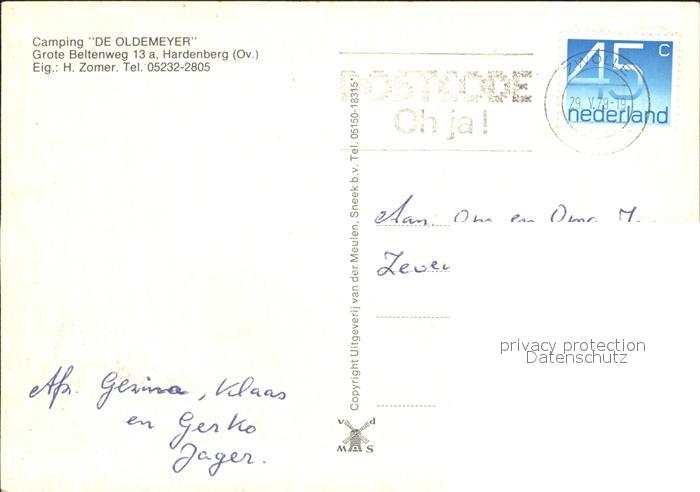 Camping "DE OLDEMEYER"
Grote Beltenweg 13 a, Hardenberg (Ov.)
Eig.: H. Zomer. Tel. 05232-2805
POSTCODE
Oh ja!
45 c
nederland
ZWOLLE
29.V.79-19
Copyright Uitgeverij van der Meulen, Sneek b.v. Tel. 05150-18315*
Aan: Oma en Oma
privacy protection
Datenschutz
Afz. Gezina, Klaas
en Gerko
Jager.
v d
M A S